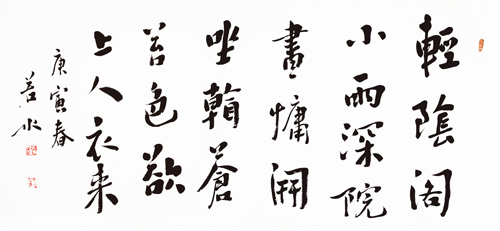 輕陰閣
小雨深院
晝慵開
坐看蒼
苔色欲
上人衣来
庚寅春
若水